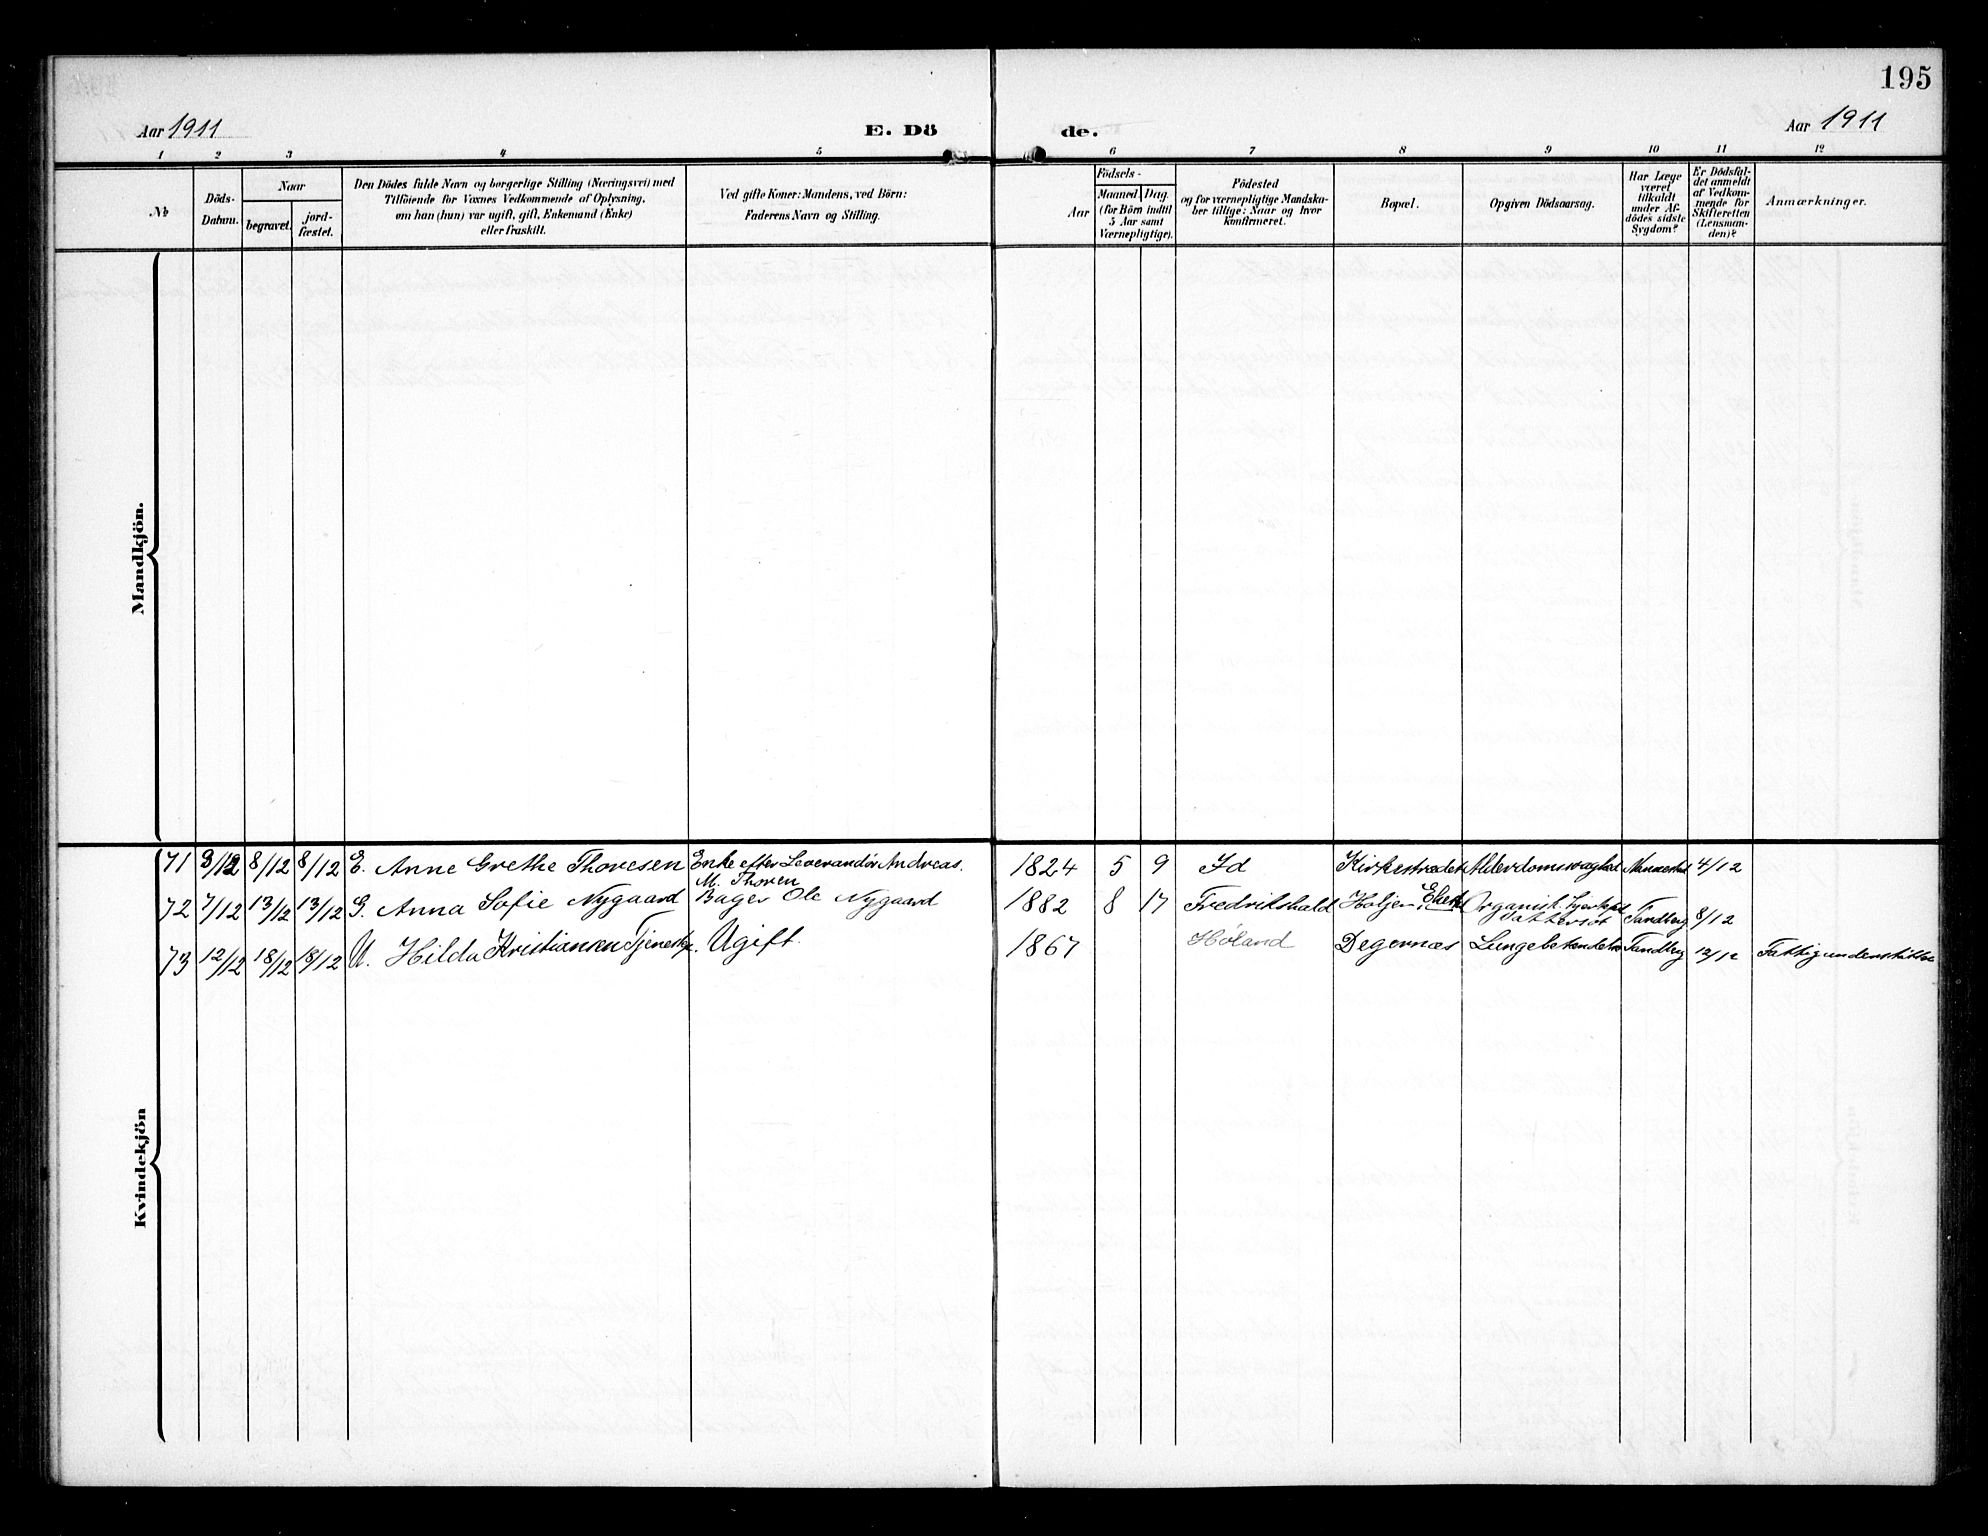 195
Aar 1911
E. Dö
de.
Aar 1911
1 2 3 4 5 6 7 8 9 10 11 12
№
Döds-
Datum.
Naar
begravet.
jord-
fæstet.
Den Dödes fulde Navn og borgerlige Stilling (Næringsvei) med
Tilföiende for Voxnes Vedkommende af Oplysning,
om han (hun) var ugift, gift, Enkemand (Enke)
eller fraskilt.
Ved gifte Koner: Mandens, ved Börn:
Faderens Navn og Stilling.
Födsels-
Aar
Maaned Dag
(for Börn indtil
5 Aar samt
Værnepligtige).
Födested
og for værnepligtige Mandska-
ber tillige: Naar og hvor
konfirmeret.
Bopæl.
Opgiven Dödsaarsag.
Har Læge
været
tilkaldt
under Af-
dödes sidste
Sygdom?
Er Dödsfal-
det anmeldt
af Vedkom-
mende for
Skifteretten
(Lensman-
den)?
Anmærkninger.
Mandkjön.
Kvindekjön
71 3/12 8/12 8/12 E. Anne Grethe Thoresen Enke efter Leverandör Andreas
M. Thoren
1824 5 9 Id Kirkestrædet Alderdomssvaghed 4/12
72 7/12 13/12 13/12 G. Anna Sofie Nygaard Bager Ole Nygaard 1882 8 17 Fredrikshald Organisk Tandberg 8/12
73 12/12 18/12 18/12 U. Hilda Kristiansen Ugift. 1867 Höland Degernæs Tandberg 12/12